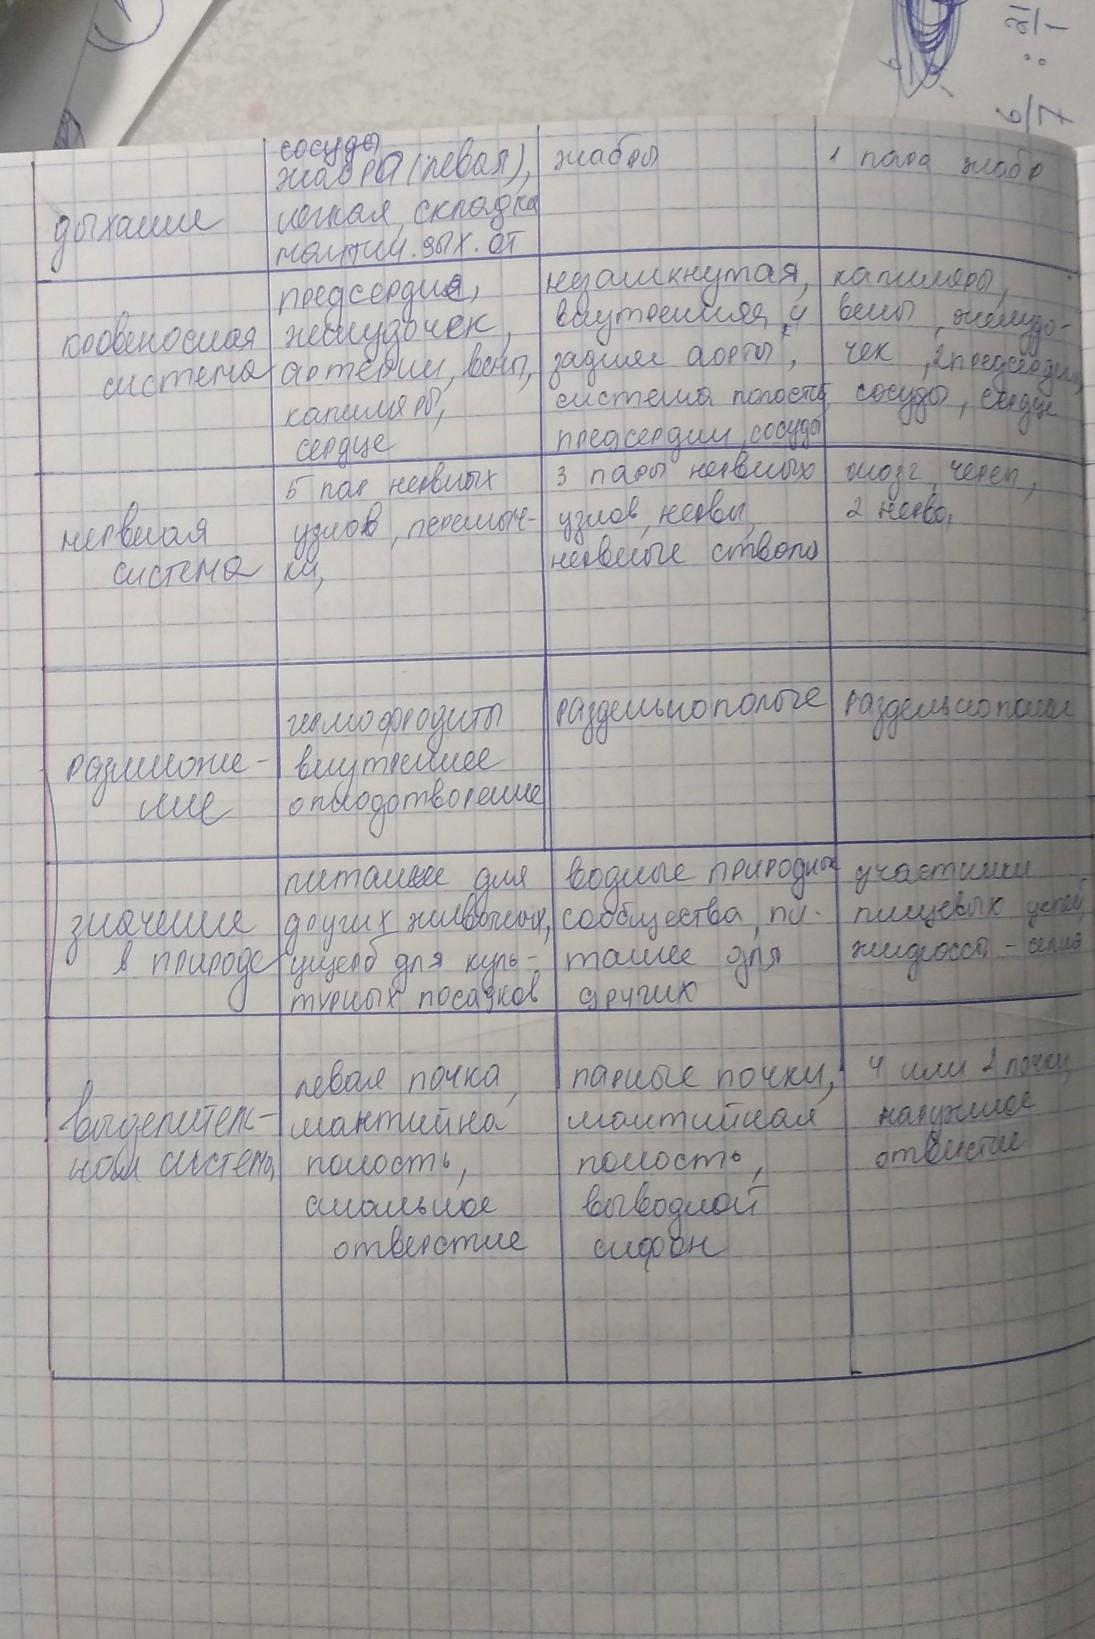 сосуды
дыхание
жабра (левая),
легкая, складка
мантии. дых. от
жабры
1 пара жабр
кровеносная
система
предсердие,
желудочек,
артерии, вены,
капиляры,
сердце
незамкнутая,
внутренняя, и
задняя аорты,
система полостей,
предсердии, сосуды
капиляры,
вены, желудо-
чек, 2 предсердия,
сосуды, сердце
нервная
система
5 пар нервных
узлов, перемыч-
ки,
3 пары нервных
узлов, нервы,
нервные стволы
мозг, череп,
2 нерва,
размноже-
ние
гермофродиты
внутреннее
оплодотворение
раздельнополые
раздельнополые
значение
в природе
питание для
других животных,
ущерб для куль-
турных посадков
водные природные
сообщества, пи-
тание для
других
участники
пищевых цепей,
жидкость - сепия
выделитель-
ная система
левая почка,
мантийна
полость,
анальное
отверстие
парные почки,
мантийная
полость,
выводной
сифон
4 или 2 почки,
наружное
отвестие
6/7 : 21/1